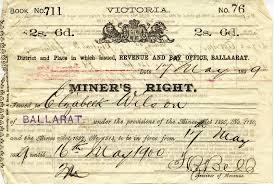 BOOK No. 711 VICTORIA. No. 76
2s. 6d. 2s. 6d.
District and Place in which issued, REVENUE AND PAY OFFICE, BALLAARAT.
Date, 17 May 189
MINER'S RIGHT.
Issued to Elizabeth Wilson
of BALLARAT. under the provisions of the
to be in force from 17 May
until 16th May 1900
Receiver of Revenue